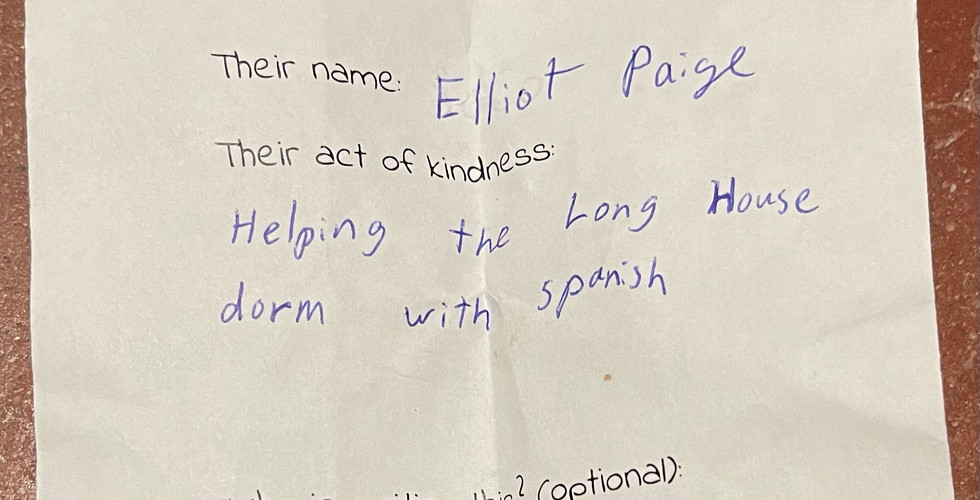 Their name: Elliot Paige
Their act of kindness:
Helping the Long House
dorm with spanish
? (optional):